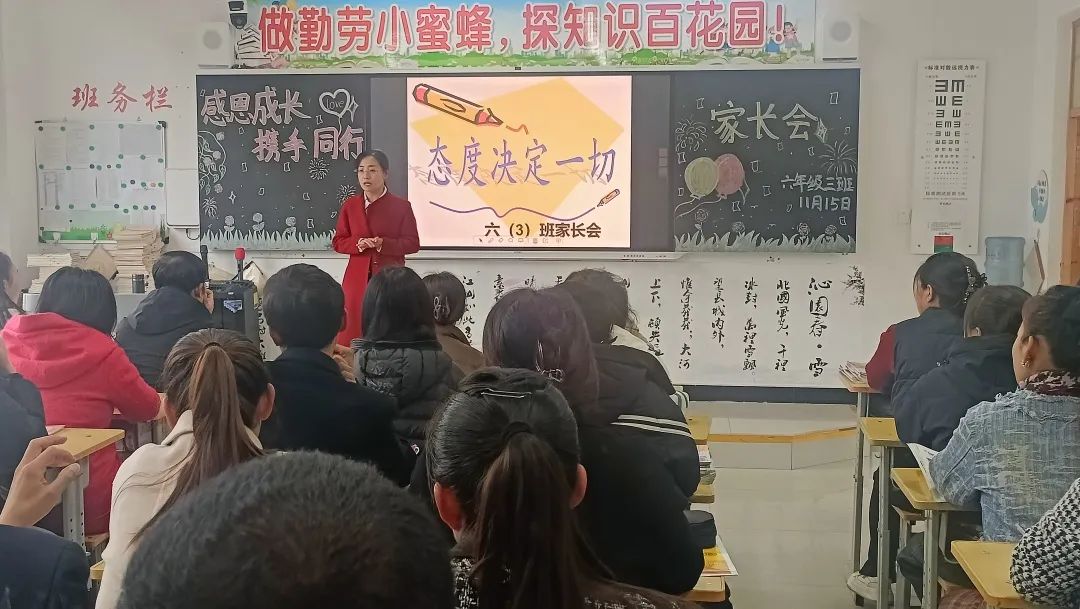 做勤劳小蜜蜂，探知识百花园！
班务栏
感恩成长
love
携手同行
态度决定一切
六（3）班家长会
家长会
六年级三班
11月15日
标准对数远视力表
沁园春·雪
北國風光，千裡
冰封，萬裡雪飄
望長城內外，
惟餘莽莽，大河
上下，頓失